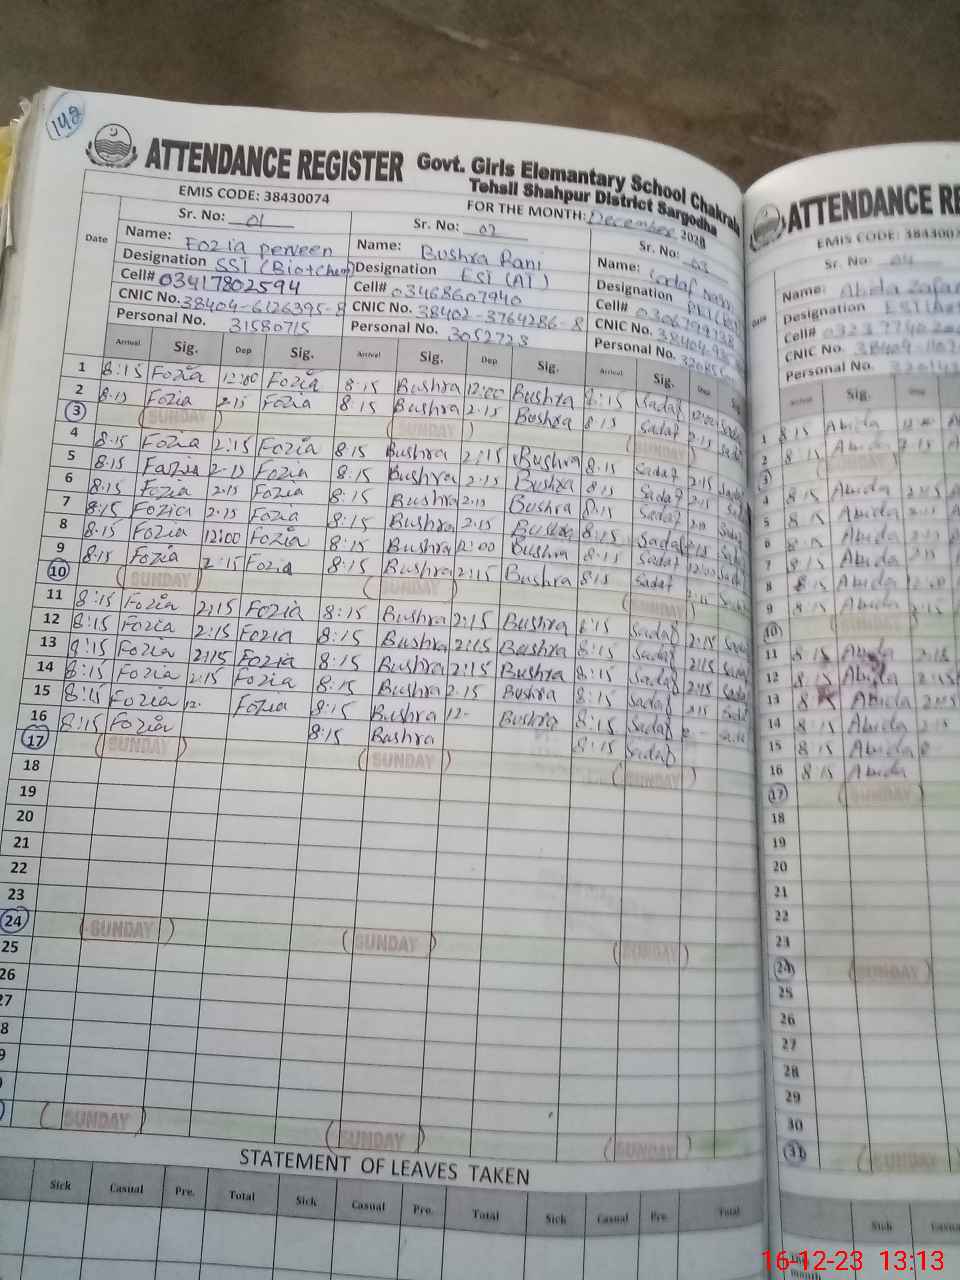 148
ATTENDANCE REGISTER Govt. Girls Elemantary School Chakrala
Tehsil Shahpur District Sargodha
EMIS CODE: 38430074 FOR THE MONTH: December 202
Sr. No: 01 Sr. No: 02 Sr. No: 03
Date
Name: Fozia perveen Name: Bushra Rani Name:
Designation SST (Biotchem) Designation ESI (AT) Designation
Cell# 03417802594 Cell# 03468607940 Cell#
CNIC No. 38404-6126395-8 CNIC No. 38402-3764286-8 CNIC No.
Personal No. 31580715 Personal No. 3052723 Personal No.
Arrival Sig. Dep Sig. Arrival Sig. Dep Sig. Arrival Sig. Dep
1 8:15 Fozia 12:00 Fozia 8:15 Bushra 12:00 Bushra 8:15 Sadaf 12:00
2 8:15 Fozia 2:15 Fozia 8:15 Bushra 2:15 Bushra 8:15 Sadaf 2:15
3 (SUNDAY) (SUNDAY) (SUNDAY)
4 8:15 Fozia 2:15 Fozia 8:15 Bushra 2:15 Bushra 8:15 Sadaf 2:15
5 8:15 Fozia 2:15 Fozia 8:15 Bushra 2:15 Bushra 8:15 Sadaf 2:15
6 8:15 Fozia 2:15 Fozia 8:15 Bushra 2:15 Bushra 8:15 Sadaf
7 8:15 Fozia 2:15 Fozia 8:15 Bushra 2:15 Bushra 8:15 Sadaf 2:15
8 8:15 Fozia 12:00 Fozia 8:15 Bushra 12:00 Bushra 8:15 Sadaf 12:00
9 8:15 Fozia 2:15 Fozia 8:15 Bushra 2:15 Bushra 8:15 Sadaf 2:15
10 (SUNDAY) (SUNDAY) (SUNDAY)
11 8:15 Fozia 2:15 Fozia 8:15 Bushra 2:15 Bushra 8:15 Sadaf 2:15
12 8:15 Fozia 2:15 Fozia 8:15 Bushra 2:15 Bushra 8:15 Sadaf 2:15
13 8:15 Fozia 2:15 Fozia 8:15 Bushra 2:15 Bushra 8:15 Sadaf 2:15
14 8:15 Fozia 2:15 Fozia 8:15 Bushra 2:15 Bushra 8:15 Sadaf 2:15
15 8:15 Fozia 12- Fozia 8:15 Bushra 12- Bushra 8:15 Sadaf
16 8:15 Fozia 8:15 Bushra 8:15 Sadaf
17 (SUNDAY) (SUNDAY) (SUNDAY)
18
19
20
21
22
23
24 (SUNDAY) (SUNDAY) (SUNDAY)
25
26
27
8
9
(SUNDAY) (SUNDAY) (SUNDAY)
STATEMENT OF LEAVES TAKEN
Sick Casual Pre. Total Sick Casual Pre. Total Sick Casual Pre. Total
ATTENDANCE RE
EMIS CODE: 3843007
Sr. No: 04
Date
Name: Abida Zafar
Designation
Cell#
CNIC No.
Personal No.
Arrival Sig. Dep
1 8:15 Abida
2 8:15 Abida 2:15
3 (SUNDAY)
4 8:15 Abida 2:15
5 8:15 Abida
6 8:15 Abida
7 8:15 Abida 2:15
8 8:15 Abida
9 8:15 Abida 2:15
10 (SUNDAY)
11 8:15 Abida 2:15
12 8:15 Abida 2:15
13 8:15 Abida 2:15
14 8:15 Abida 2:15
15 8:15 Abida
16 8:15 Abida
17 (SUNDAY)
18
19
20
21
22
23
24 (SUNDAY)
25
26
27
28
29
30
31 (SUNDAY)
Sick
month
16-12-23 13:13